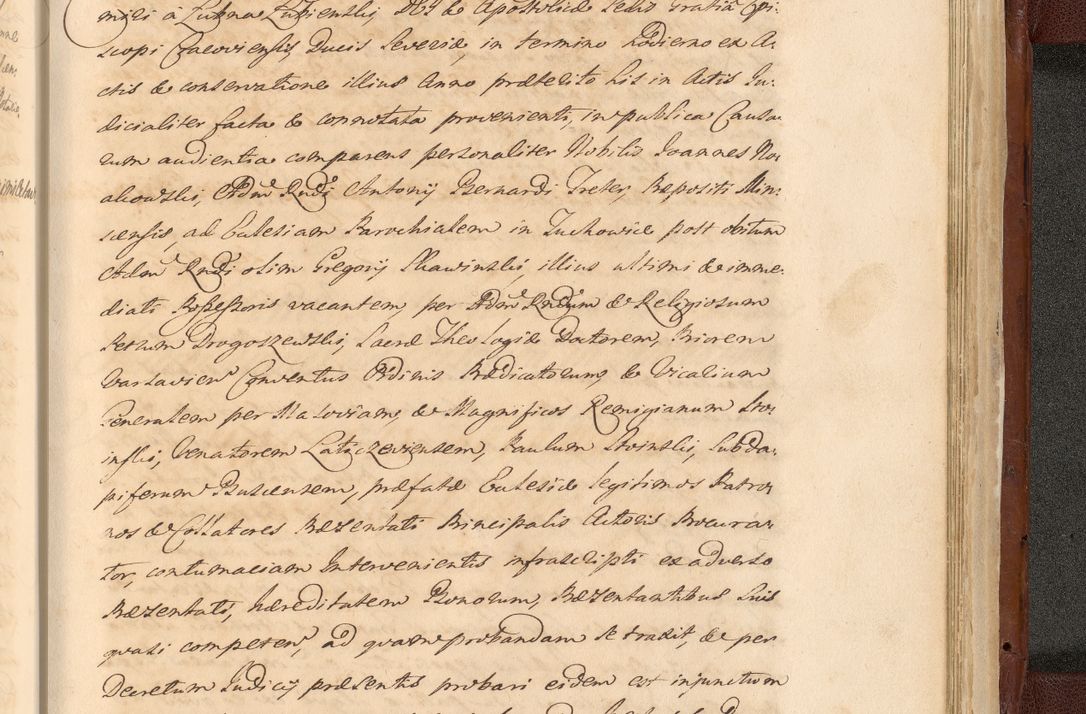 mizi à Łubna Łubienslij Dei & Apostolicæ Sedis Gratiâ Epi-
scopi Cracoviensis, Ducis Severiæ, in termino hodierno ex A-
ctis & conservatione illius Anno præterito his in Actis Ju-
dicialiter facta & connotata provenienti, in publica Causa-
rum audientia comparens personaliter Nobilis Joannes No-
akowslij, Admᵈ Rndi Antonij Bernardi Treter, Præpositi Min-
scensis, ad Ecclesiam Parochialem in Tuchowice post obitum
Admᵈ Rndi olim Gregorij Skawinslij, illius ultimi & imme-
diati Possessoris vacantem, per Admᵈ Rndum & Religiosum
Petrum Drogoszewslij, Sacræ Theologiæ Doctorem, Priorem
Varsavienˢ Conventus Ordinis Prædicatorum, & Vicarium
Generalem per Masoviam, & Magnificos Remigianum Stoi-
inslij, Venatorem Latyczeviensem, Paulum Stoinslij, Subda-
piferum Buscensem, præfatæ Ecclesiæ legitimos Patro-
nos & Collatores Præsentati Principalis Actoris Procura-
tor, contumaciam Intervenientis infrascripti ex adverso
Præsentati, hæreditatem Bonorum, Præsentantibus suis
quasi competenˢ, ad quam probandam se traxit, & per
Decretum Judicij præsentis probari eidem est injunctum